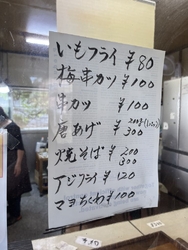 いもフライ ¥80
梅串カツ ¥100
串カツ ¥100
唐あげ ¥200 300
焼そば ¥200 300
アジフライ ¥120
マヨちくわ ¥100